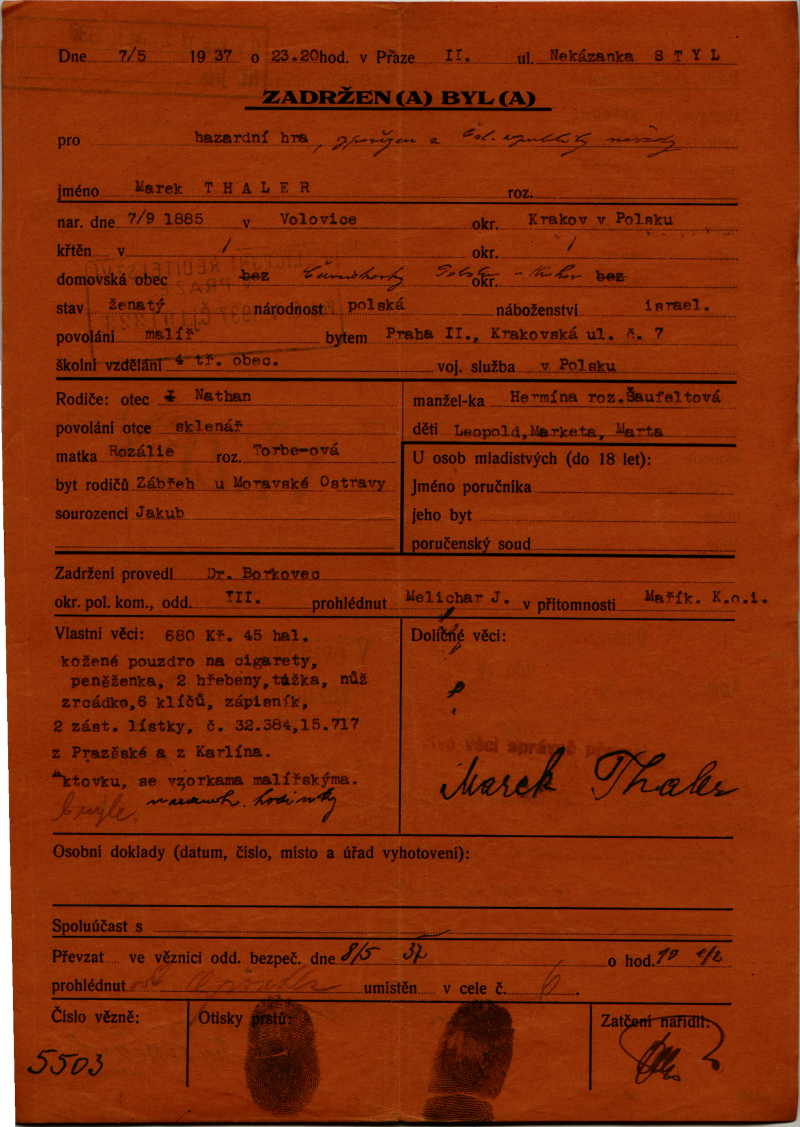 Dne 7/5 1937 o 23.20hod. v Praze II. ul. Nekázanka S T Y L
ZADRŽEN(A) BYL(A)
pro hazardní hra,
jméno Marek T H A L E R roz.
nar. dne 7/9 1885 v Volovice okr. Krakov v Polsku
křtěn v / okr. /
domovská obec bez okr. bez
stav ženatý národnost polská náboženství israel.
povolání malíř bytem Praha II., Krakovská ul. č. 7
školní vzdělání 4 tř. obec. voj. služba v Polsku
Rodiče: otec Nathan
povolání otce sklenář
matka Rozálie roz. Torbe-ová
byt rodičů Zábřeh u Moravské Ostravy
sourozenci Jakub
manžel-ka Hermína roz.Šaufeltová
děti Leopold,Marketa, Marta
U osob mladistvých (do 18 let):
Jméno poručníka
jeho byt
poručenský soud
Zadržení provedl Dr. Borkovec
okr. pol. kom., odd. III. prohlédnut Melichar J. v přítomnosti Mařík. K.o.i.
Vlastní věci: 680 Kř. 45 hal.
kožené pouzdro na cigarety,
peněženka, 2 hřebeny,tužka, nůž
zrcádko,6 klíčů, zápisník,
2 zást. lístky, č. 32.384,15.717
z Prazěské a z Karlína.
Aktovku, se vzorkama malířskýma.
brýle, naramk. hodinky
Doličné věci:
Marek Thaler
Osobní doklady (datum, číslo, místo a úřad vyhotovení):
Spoluúčast s
Převzat ve věznici odd. bezpeč. dne 8/5 37 o hod. 10
prohlédnut umístěn v cele č. 6.
Číslo vězně: Otisky prstů: Zatčení nařídil:
5503